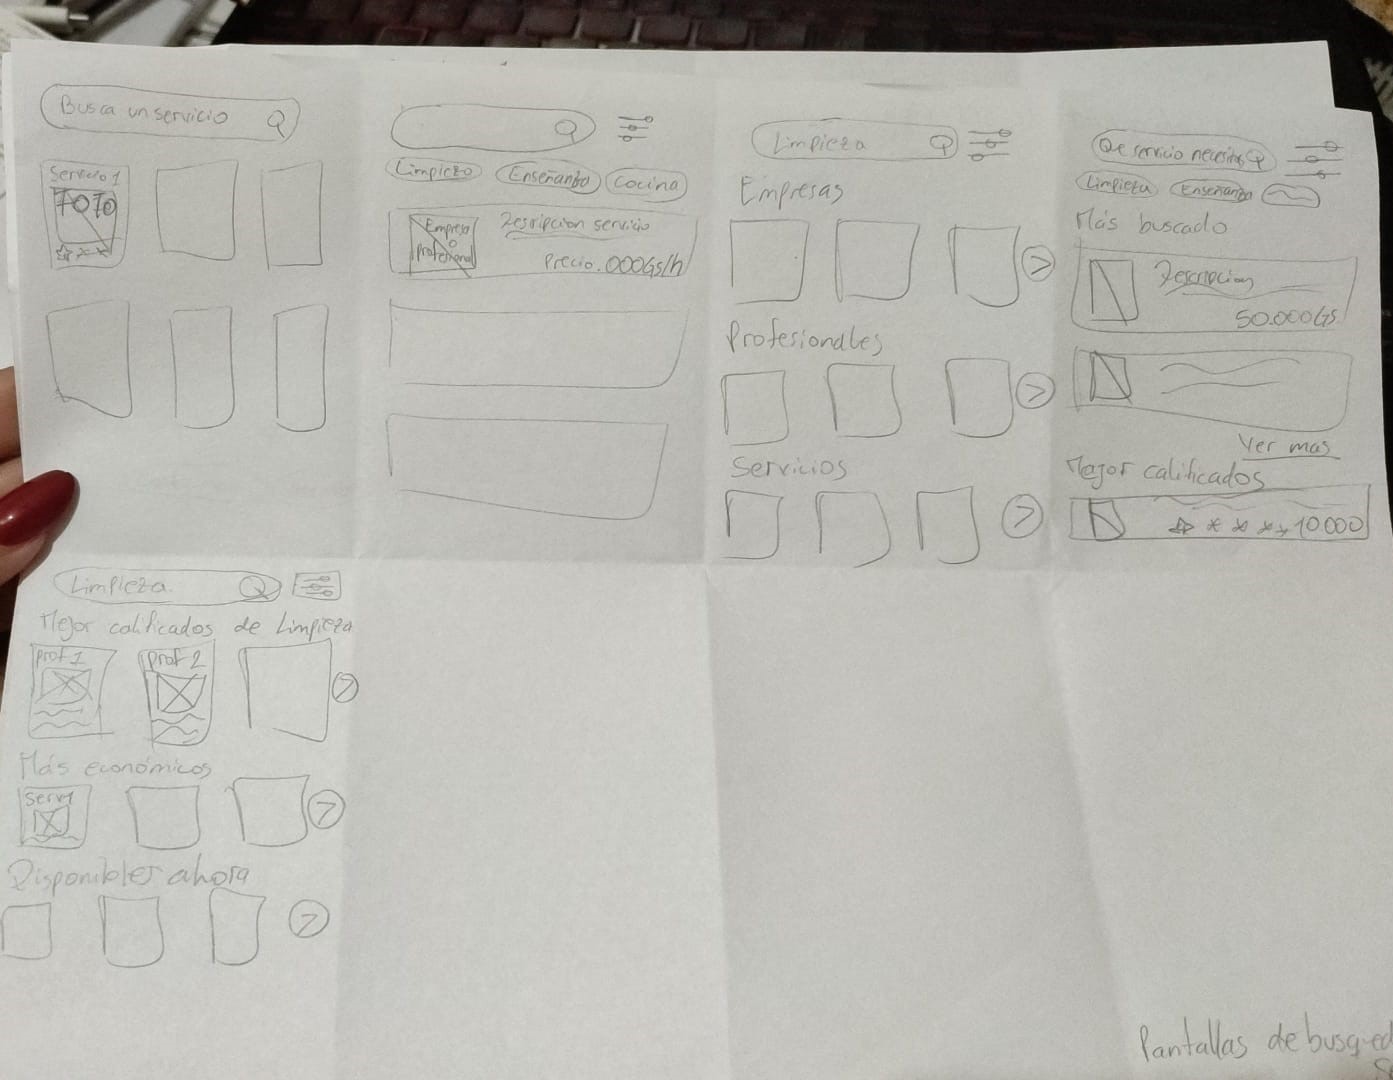 Busca un servicio
Servicio 1
FOTO
Limpieza
Enseñanza
Cocina
Empresa
o
Profesional
Descripcion servicio
Precio.000Gs/h
Limpieza
Empresas
Profesionales
Servicios
Que servicio necesitas
Limpieza
Enseñanza
Más buscado
Descripcion
50.000Gs.
Ver mas
Mejor calificados
10.000
Limpieza
Mejor calificados de Limpieza
prof 1
prof 2
Más económicos
Serv1
Disponibles ahora
Pantallas de busqued